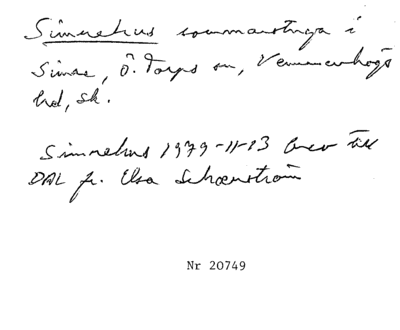 Simrehus sommarstuga i
Simre, Ö. Torps sn, Vemmenhögs
hd, Sk.
Simrehus 1979-11-13 brev till
DAL fr. Elsa Schoenström
Nr 20749